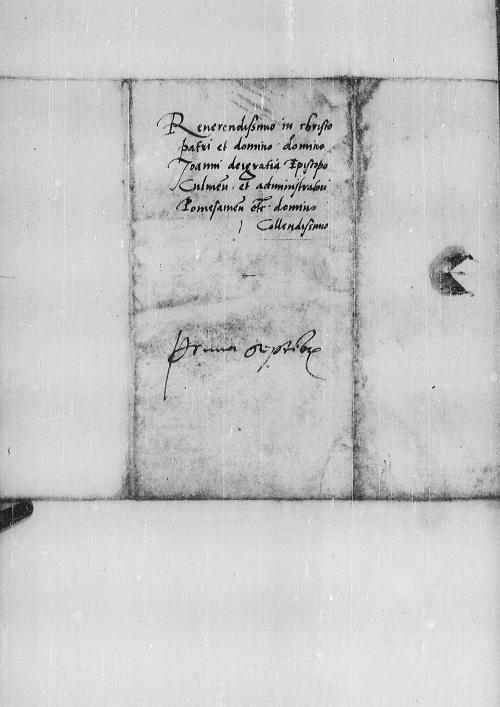 Reverendissimo in christo
patri et domino domino
Joanni dei gratia Episcopo
Culmeñ. et administratori
Pomesanieñ etc domino
Collendissimo
Prima Septēbr